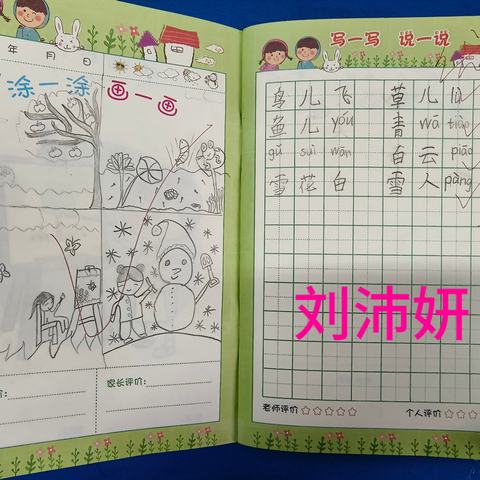 年 月 日
涂一涂 画一画
家长评价:
写一写 说一说
鸟 儿 飞 草 儿
鱼 儿 yóu 青 wā tiào
gǔ suì wān 白 云 piāo
雪 花 白 雪 人 pàng
刘沛妍
老师评价 ☆☆☆☆☆ 个人评价 ☆☆☆